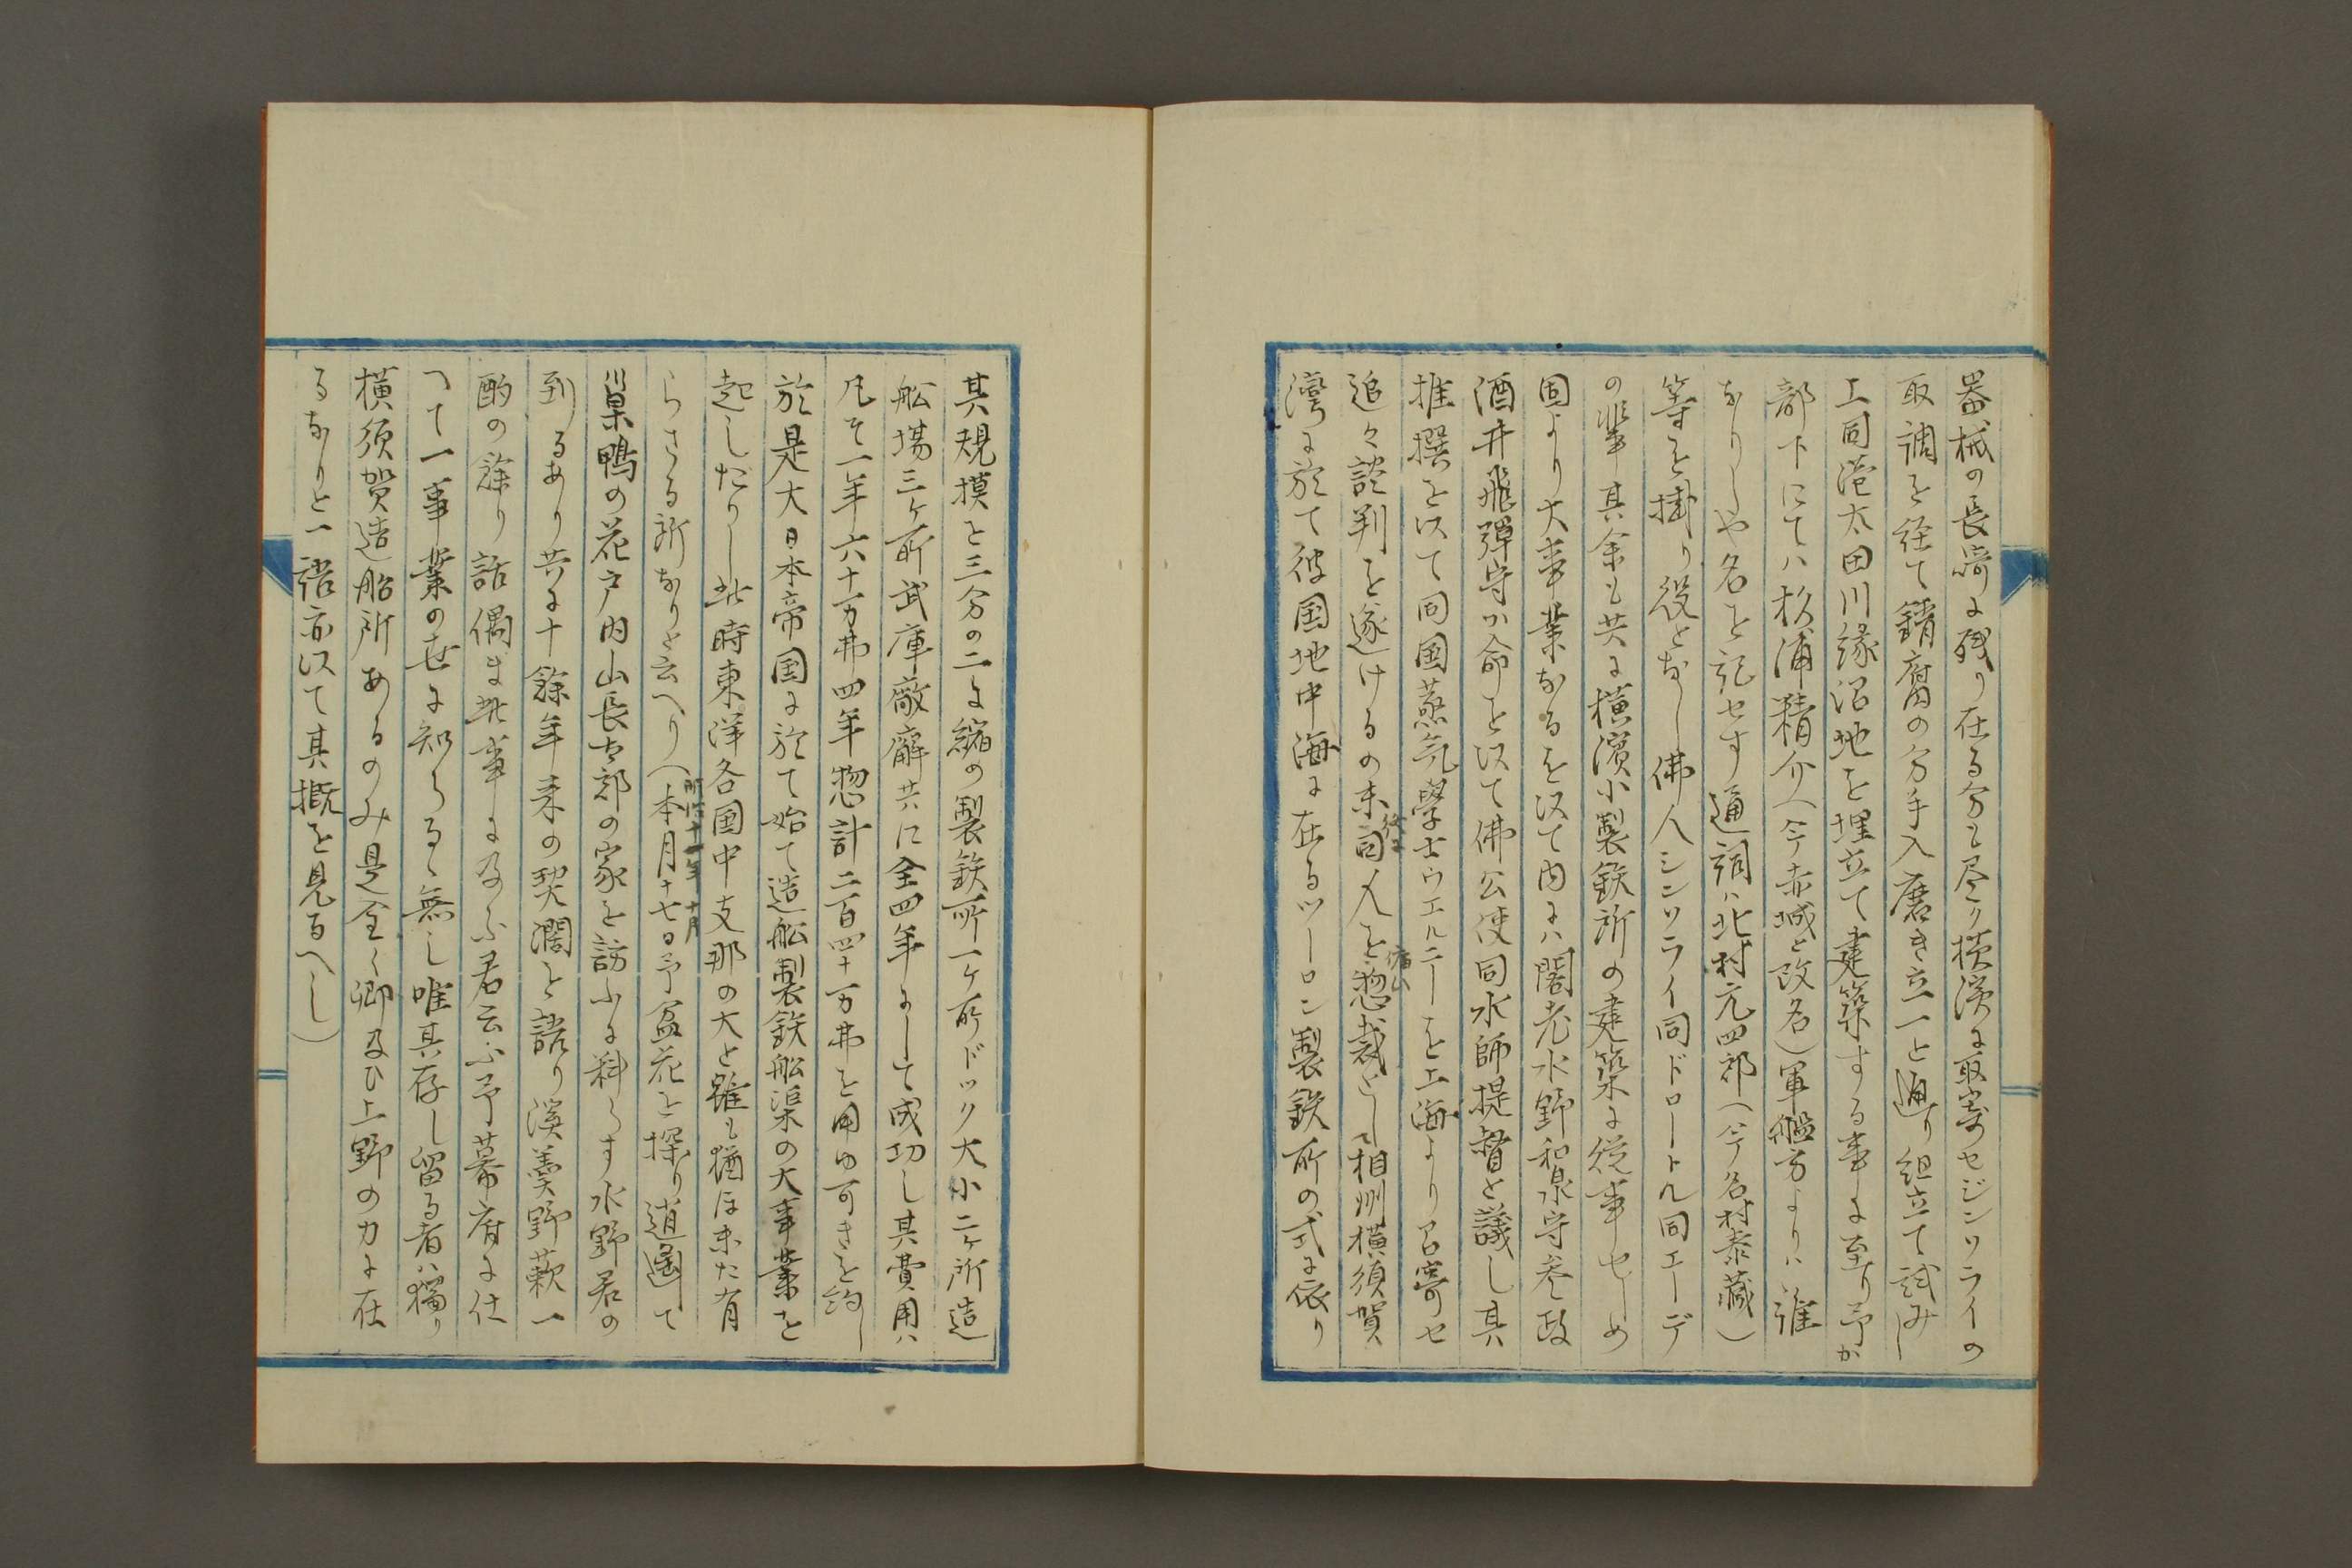 器械の長崎に残り在る分も尽く横濱に取寄セジンソライの
取調を経て錆腐の分手入磨き立一と通り組立て試みし
上同港太田川縁沼地を埋立て建築する事に至り予か
部下にてハ杉浦精介(今赤城と改名)軍艦方よりハ誰
なりしや名を記せす通詞ハ北村元四郎(今名村泰藏)
等を掛り役となし佛人シンソライ同ドロートル同エーデ
の輩其余も共に横濱小製鉄所の建築に従事せしめ
固より大事業なるを以て内にハ閣老水野和泉守参政
酒井飛彈守か命を以て佛公使同水師提督と議し其
推撰を以て同国蒸気學士ウエルニーを上海より呼寄せ
追々談判を遂けるの末終に同人を惣裁とし相州横須賀
灣に於て彼国地中海に在るツーロン製鉄所の式に依り
其規模を三分の二に縮め製鉄所一ケ所ドック大小二ケ所造
舩場三ケ所武庫廠廨共に全四年にして成功し其費用ハ
凡そ一年六十万弗四年惣計二百四十万弗を用ゆ可きを約し
於是大日本帝国に於て始て造舩製鉄舩渠の大事業を
起しだりし此時東洋各国中支那の大と雖も猶ほ未た有
らさる所なりと云へり(本月十七日予盆花を探り逍遥て
明治十一年十月
巣鴨の花戸内山長太郎の家を訪ふに料らす水野君の
到るあり共に十餘年来の契濶を語り渓羹野蔌一
酌の餘り話偶ま此事に及ふ君云ふ予幕府に仕
へて一事業の世に知らるゝ無し唯其存し留る者ハ獨り
横須賀造船所あるのみ是全く卿及ひ上野の力に在
るなりと一語亦以て其概を見るへし)